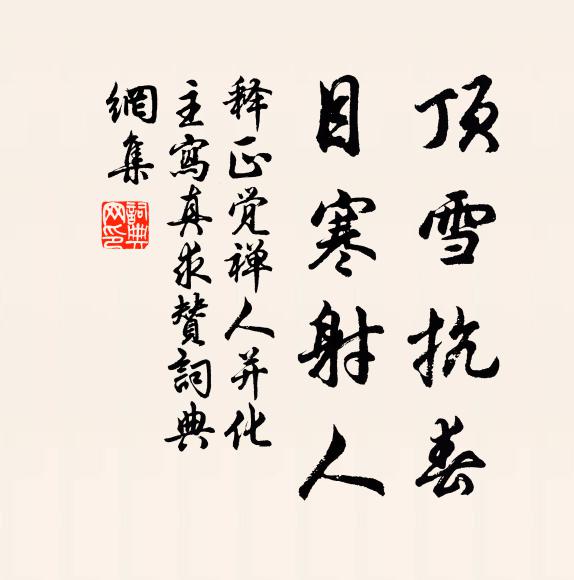 顶雪抗春
目寒射人
释正觉禅人并化
主寫真求贊詞典
網集
詞典网印